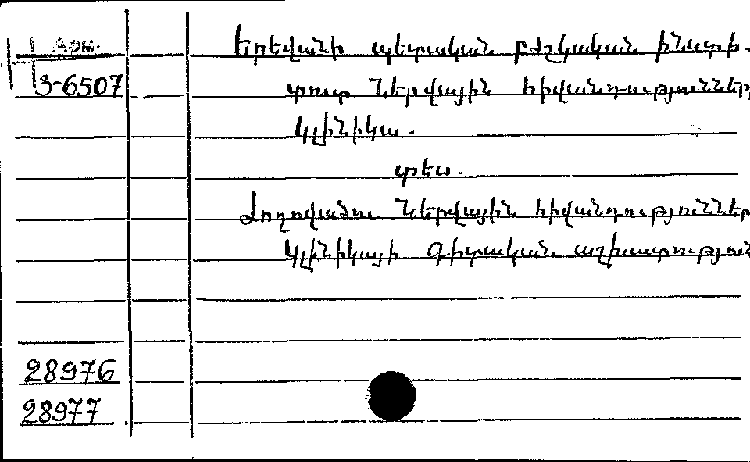 Арм.
3-6507
Երեվանի պետական բժշկական ինստի-
տուտ Ներվային հիվանդություններ
կլինիկա.
տես.
Ժողովածու Ներվային հիվանդություններ
կլինիկայի Գիտական աշխատություն
28976
28977